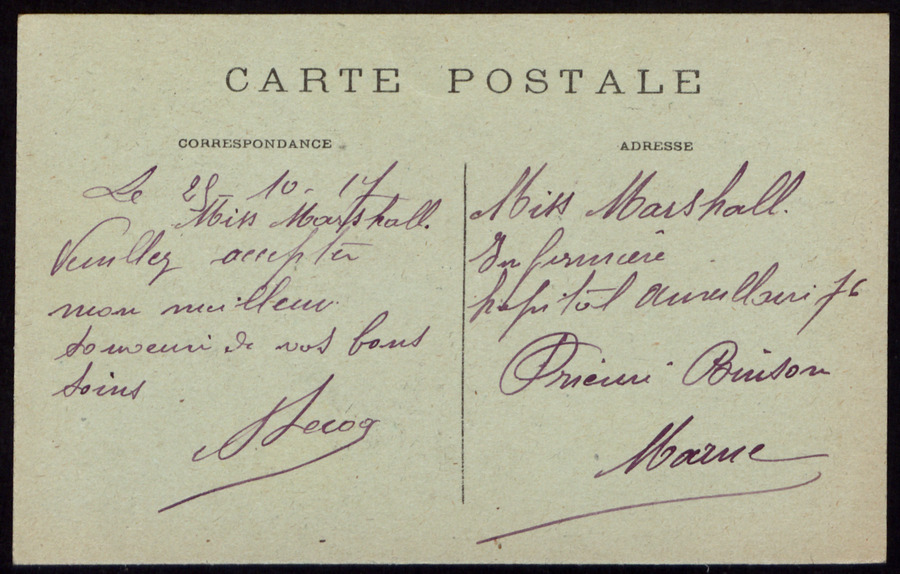 CARTE POSTALE
CORRESPONDANCE
Le 25-10-17
Miss Marshall.
Veuillez accepter
mon meilleur
souvenir de vos bons
soins
Lecoq
ADRESSE
Miss Marshall.
Infirmière
hopitâl auxillairi 76
Prieuré Binson
Marne